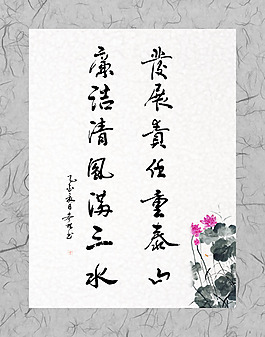 發展責任重泰山
廉詰清風滿三水